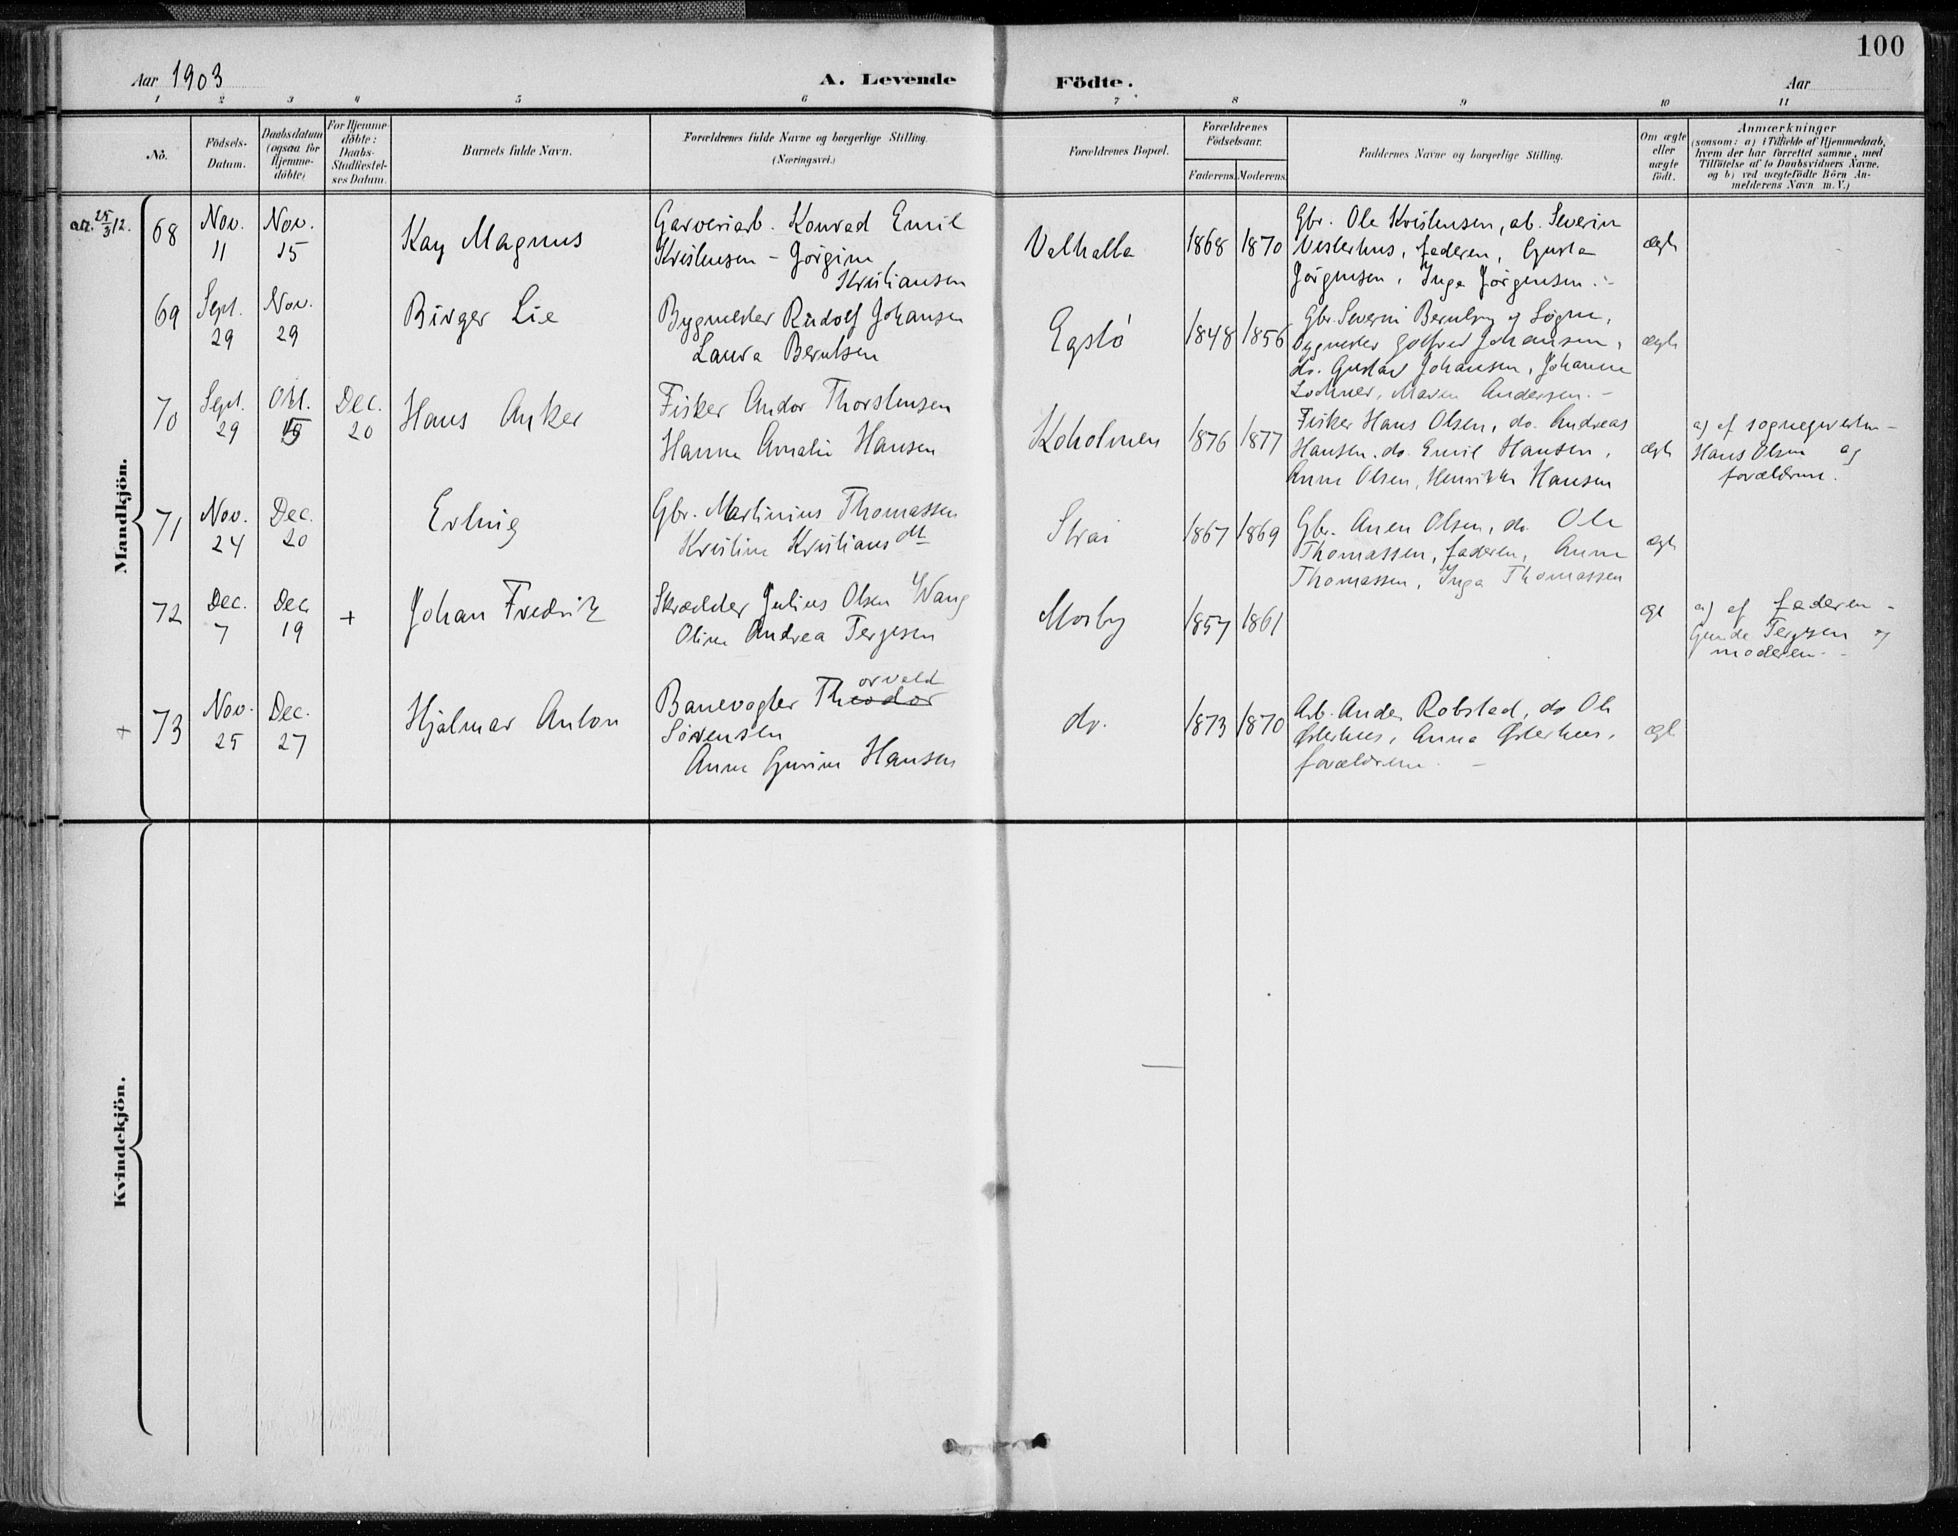 100
Aar 1903
A. Levende Födte.
Aar
1 2 3 4 5 6 7 8 9 10 11
No.
Födsels-
Datum.
Daabsdatum
(ogsaa for
Hjemme-
döbte)
For Hjemme-
döbte:
Daabs-
Stadfæstel-
ses Datum.
Barnets fulde Navn.
Forældrenes fulde Navne og borgerlige Stilling.
(Næringsvei.)
Forældrenes Bopæl.
Forældrenes
Födselsaar.
Faderens. Moderens.
Faddernes Navne og borgerlige Stilling.
Om ægte
eller
uægte
födt.
Anmærkninger
(saasom: a) i Tilfælde af Hjemmedaab,
hvem der har forrettet samme, med
Tilföielse af to Daabsvidners Navne,
og b) ved uægtefödte Börn An-
melderens Navn m. V.)
Mandkjön.
att. 25/3 12.
68
Nov.
11
Nov.
15
Kay Magnus
Garveriarb. Konrad Emil
Kristensen - Jørgine
Kristiansen
Valhalla
1868
1870
Gbr. Ole Kristensen, ab. Severin
Vesterhus, faderen, Gusta
Jørgensen, Inga Jørgensen.
ægte
69
Sept.
29
Nov.
29
Birger Lie
Bygmester Rudolf Johansen
Laura Berntsen
Egslø
1848
1856
Gbr. Severin Berntsen af Søgne,
bygmester Golfred Johansen,
do. Gustav Johansen, Johanne
Lochner, Maren Andersen. -
ægte
70
Sept.
29
Okt.
Dec.
20
Hans Anker
Fisker Andor Thorstensen
Hanna Amalie Hansen
Koholmen
1876
1877
Fisker Hans Olsen, do. Andreas
Hansen, do. Emil Hansen,
Anna Olsen, Henrikke Hansen
ægte
a) af
Hans Olsen og
forældrene.
71
Nov.
24
Dec.
20
Erling
Gbr. Martinius Thomassen
Kristine Kristiansdt
Strai
1867
1869
Gbr. Anen Olsen, do. Ole
Thomassen, faderen, Anna
Thomassen, Inga Thomassen
ægte
72
Dec.
7
Dec.
19
+
Johan Fredrik
Skrædder Julius Olsen Wang
Oline Andrea Terjesen
Mosby
1857
1861
ægte
a) af faderen -
Gunda Terjesen og
moderen. -
+
73
Nov.
25
Dec.
27
Hjalmar Anton
orvald
Banevogter Theodor
Sørensen
Anna Gurine Hansen
do.
1873
1870
Arb. Anders Robstad, do Ole
Østerhus, Anna Østerhus,
forældrene. -
ægte
Kvindekjön.